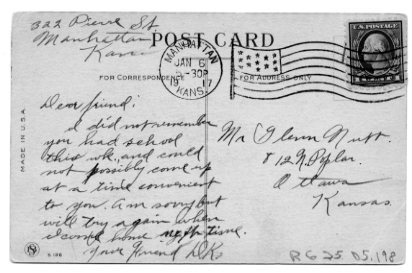 322 Pierre St
Manhattan
Kans.
POST CARD
MANHATTAN
JAN 6
-30P
1917
KANS.
U.S. POSTAGE
FOR CORRESPONDENCE
FOR ADDRESS ONLY
MADE IN U.S.A.
Dear friend:
I did not remember
you had school
this wk., and could
not possibly come up
at a time convenient
to you. Am sorry but
will try again when
I come home next time.
Your friend D.K.
Mr Glenn Nutt.
812 N. Poplar.
Ottawa
Kansas.
S 196
RG 25.05.198